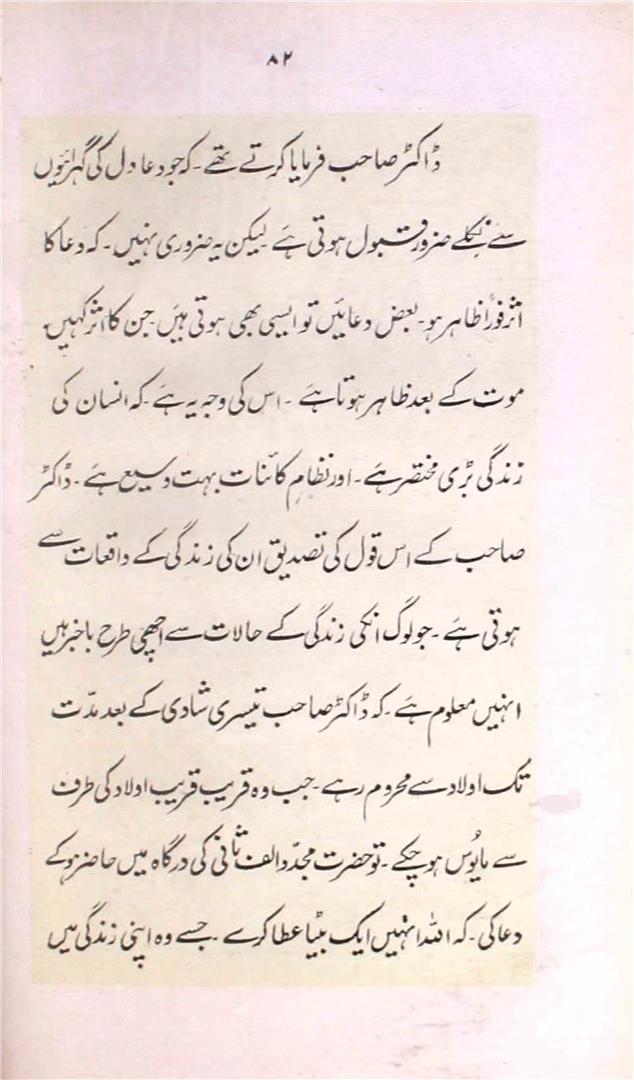 ۸۲
ڈاکٹر صاحب فرمایا کرتے تھے ۔ کہ جو دعا دل کی گہرائیوں
سے نکلے ضرور قبول ہوتی ہے لیکن یہ ضروری نہیں ۔ کہ دعا کا
اثر فوراً ظاہر ہو ۔ بعض دعائیں تو ایسی بھی ہوتی ہیں ۔ جن کا اثر کہیں
موت کے بعد ظاہر ہوتا ہے ۔ اس کی وجہ یہ ہے ۔ کہ انسان کی
زندگی بڑی مختصر ہے ۔ اور نظامِ کائنات بہت وسیع ہے ۔ ڈاکٹر
صاحب کے اس قول کی تصدیق ان کی زندگی کے واقعات سے
ہوتی ہے ۔ جو لوگ انکی زندگی کے حالات سے اچھی طرح باخبر ہیں
انہیں معلوم ہے ۔ کہ ڈاکٹر صاحب تیسری شادی کے بعد مدّت
تک اولاد سے محروم رہے ۔ جب وہ قریب قریب اولاد کی طرف
سے مایوُس ہو چکے ۔ تو حضرت مجدّد الف ثانی کی درگاہ میں حاضر ہو کے
دعا کی ۔ کہ اللہ انہیں ایک بیٹا عطا کرے ۔ جسے وہ اپنی زندگی میں